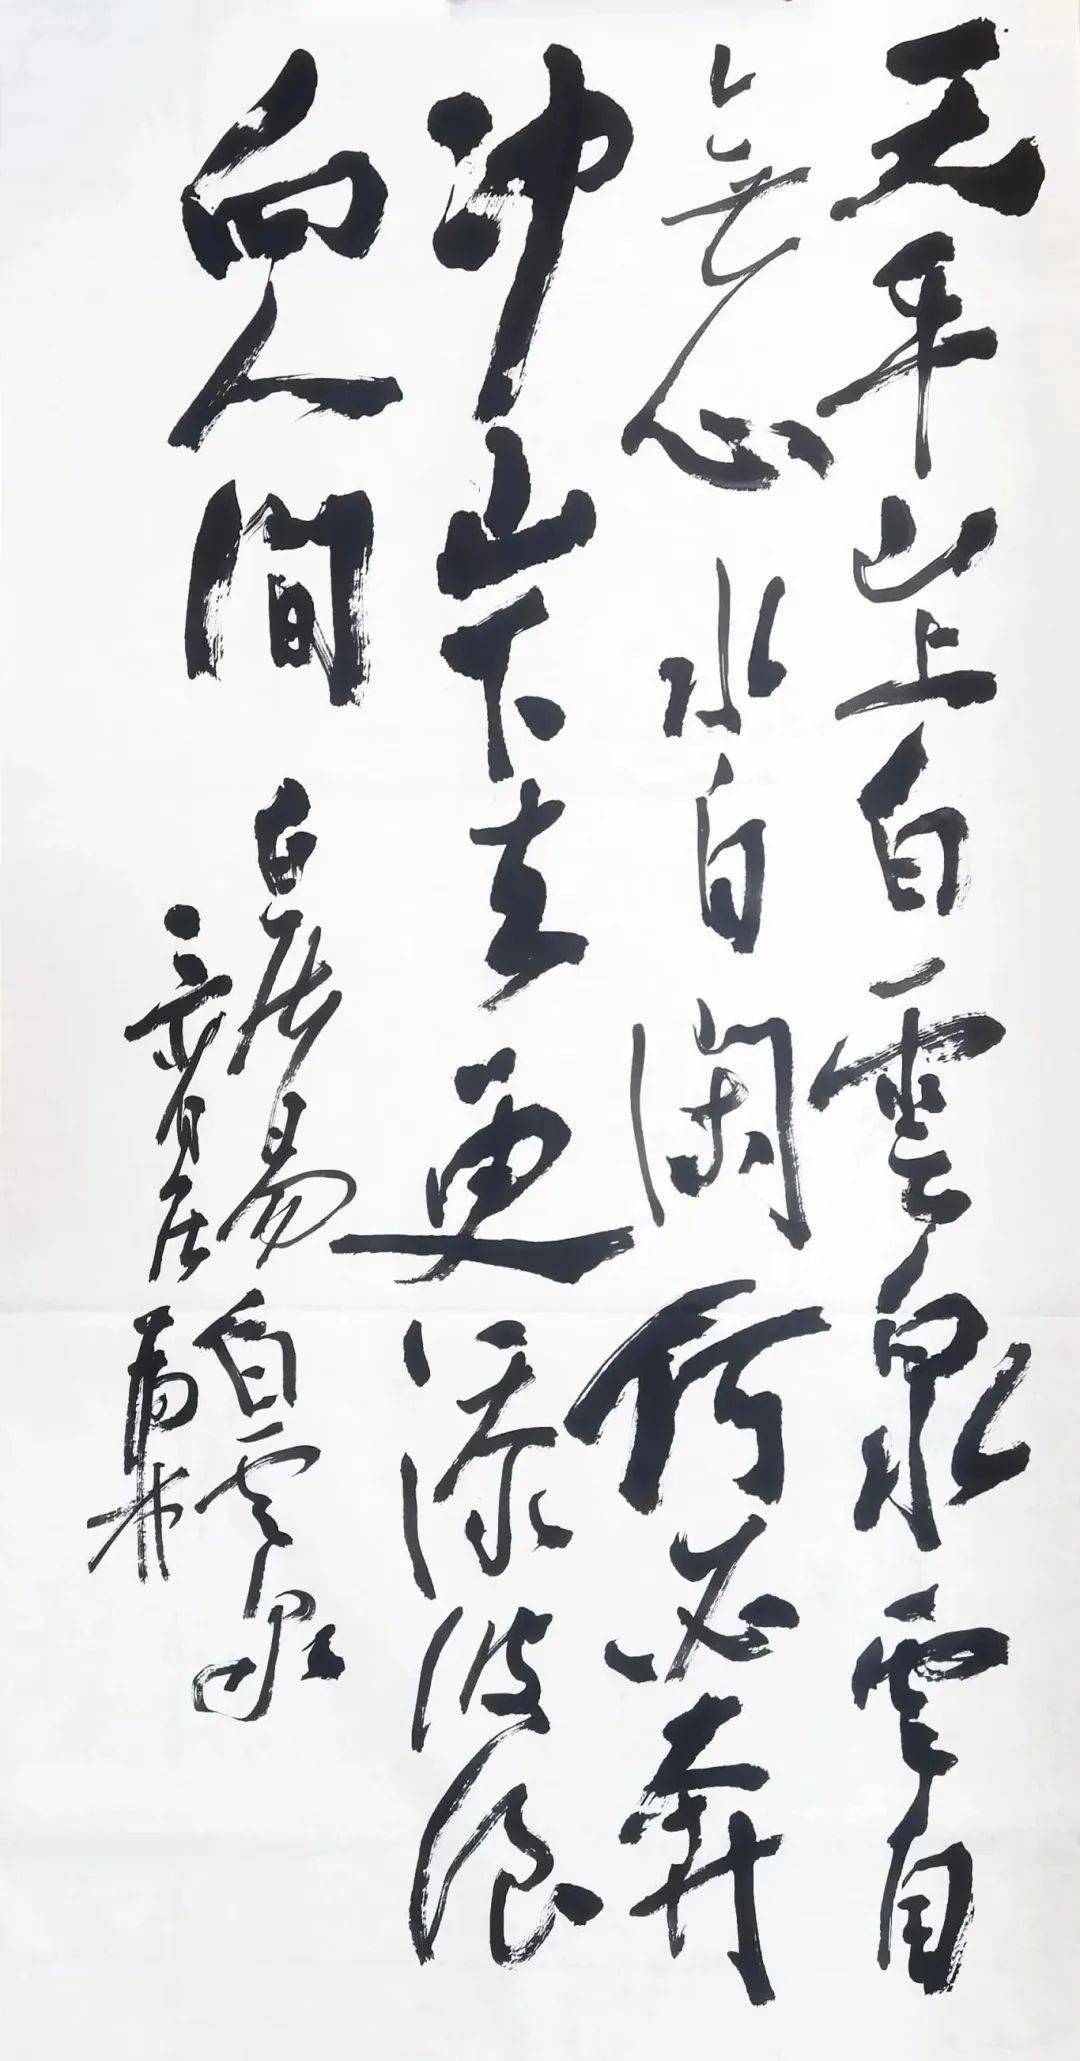 天平山上白雲泉雲自
無心水自閑何必奔
冲山下去更添波浪
向人間
白居易白雲泉